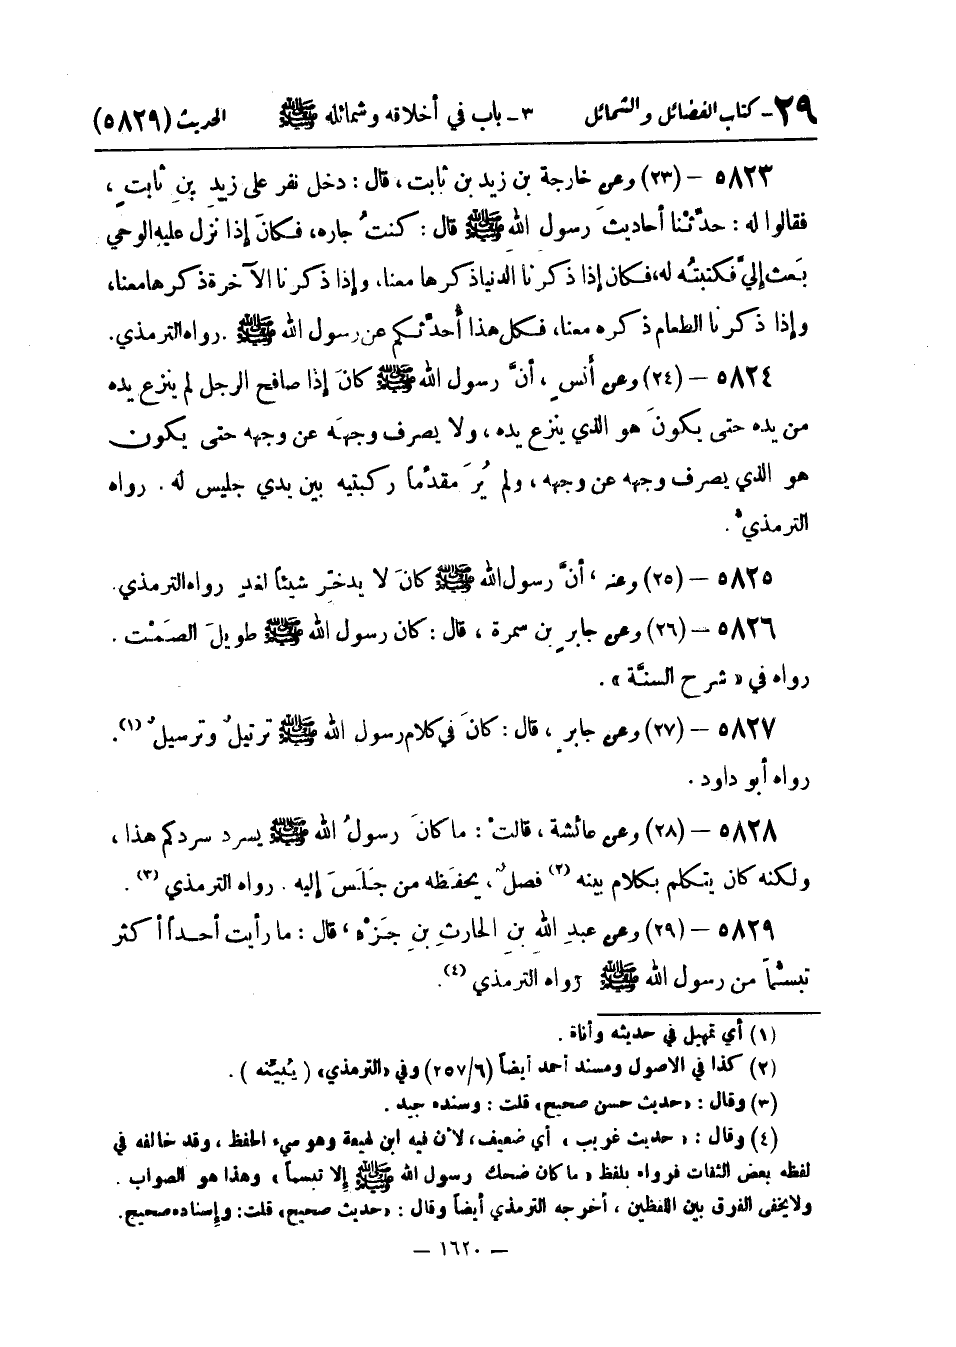 ٢٩- كتاب الفضائل والشمائل ٣- باب في أخلاقه وشمائله ﷺ الحديث (٥٨٢٩)
٥٨٢٣ – (٢٣) وعن خارجة بن زيد بن ثابت، قال: دخل نفر على زيدِ بنِ ثابتٍ،
فقالوا له: حدَّثْنا أحاديثَ رسول اللهِ ﷺ قال: كنتُ جاره، فكانَ إذا نزل عليه الوحي
بَعث إليَّ فكتبتُه له، فكان إذا ذكرنا الدنيا ذكرها معنا، وإذا ذكرنا الآخرة ذكرها معنا،
وإذا ذكرنا الطعام ذكره معنا، فكل هذا أُحدِّثكم عن رسول الله ﷺ. رواه الترمذي.
٥٨٢٤ – (٢٤) وعن أنسٍ، أنَّ رسول الله ﷺ كانَ إذا صافح الرجل لم ينزع يده
من يده حتى يكونَ هو الذي ينزع يده، ولا يصرف وجهَه عن وجهه حتى يكون
هو الذي يصرف وجهه عن وجهه، ولم يُرَ مقدِّماً ركبتيه بين يدي جليس له. رواه
الترمذيُّ.
٥٨٢٥ – (٢٥) وعنه، أنَّ رسول الله ﷺ كانَ لا يدخّر شيئاً لغدٍ رواه الترمذي.
٥٨٢٦ – (٢٦) وعن جابرِ بن سمرة، قال: كان رسول الله ﷺ طويلَ الصَمْت.
رواه في «شرح السنَّة».
٥٨٢٧ – (٢٧) وعن جابرٍ، قال: كانَ في كلام رسول الله ﷺ ترتيلٌ وترسيلٌ(١).
رواه أبو داود.
٥٨٢٨ – (٢٨) وعن عائشة، قالتْ: ما كانَ رسولُ الله ﷺ يسرد سردكم هذا،
ولكنه كان يتكلم بكلام بينه(٢) فصلٌ، يحفَظه من جَلَسَ إليه. رواه الترمذي(٣).
٥٨٢٩ – (٢٩) وعن عبدِ الله بنِ الحارثِ بنِ جَزْء، قال: ما رأيت أحداً أكثر
تبسُّماً من رسول الله ﷺ رواه الترمذي(٤).
(١) أي تمهل في حديثه وأناة.
(٢) كذا في الاصول ومسند أحمد أيضاً (٢٥٧/٦) وفي «الترمذي» (يُبيّنه).
(٣) وقال: «حديث حسن صحيح» قلت: وسنده جيد.
(٤) وقال: «حديث غريب» أي ضعيف، لأن فيه ابن لهيعة وهو سيء الحفظ، وقد خالفه في
لفظه بعض الثقات فرواه بلفظ «ما كان ضحك رسول الله ﷺ إلا تبسماً» وهذا هو الصواب.
ولا يخفى الفرق بين اللفظين، أخرجه الترمذي أيضاً وقال: «حديث صحيح» قلت: وإسناده صحيح.
– ١٦٢٠ –